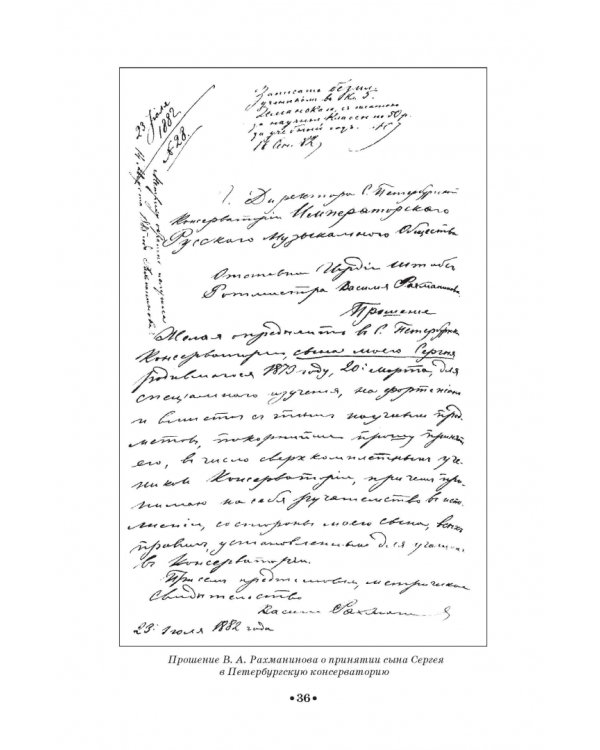 23 июля
1882
№ 28.
Записать безпл.
ученикомъ въ кл. З.
Демянскаго, съ платою
за научные классы по 50 р.
за учебный годъ.
18 Сен. 82
Г. Директора С. Петербургской
Консерваторіи Императорскаго
Русскаго Музыкальнаго Общества
Отставнаго Гвардіи Штабсъ
Ротмистра Василія Рахманинова
Прошеніе
Желая опредѣлить въ С. Петербург.
Консерваторію, сына моего Сергѣя
родившагося 1873 году, 20го Марта, для
спеціальнаго изученія, на фортепіано
и вмѣстѣ съ тѣмъ научныхъ пред-
метовъ, покорнѣйше прошу принять
его, въ число сверхкомплектныхъ уче-
никовъ Консерваторіи, причемъ при-
нимаю на себя ручательство въ испол-
неніи, со стороны моего сына, всѣхъ
правилъ, установленныхъ для учащихся
въ Консерваторіи.
При семъ представляю, метрическое
Свидѣтельство
Василій Рахманиновъ
23го Іюля 1882 года
Прошение В. А. Рахманинова о принятии сына Сергея
в Петербургскую консерваторию
• 36 •